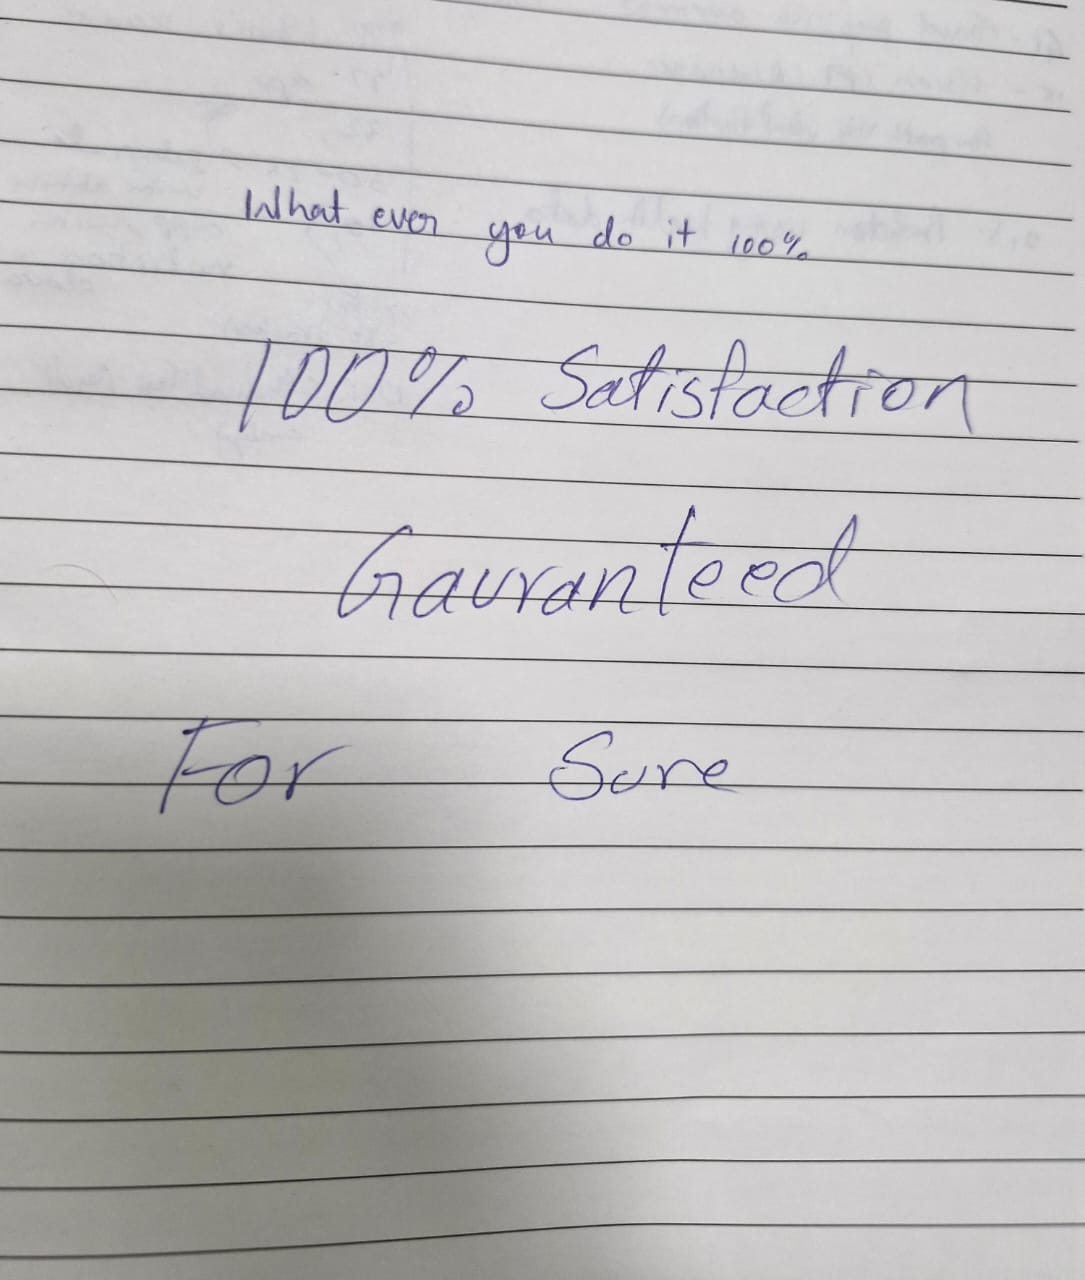 What ever you do it 100%
100% Satisfaction
Gauranteed
For Sure